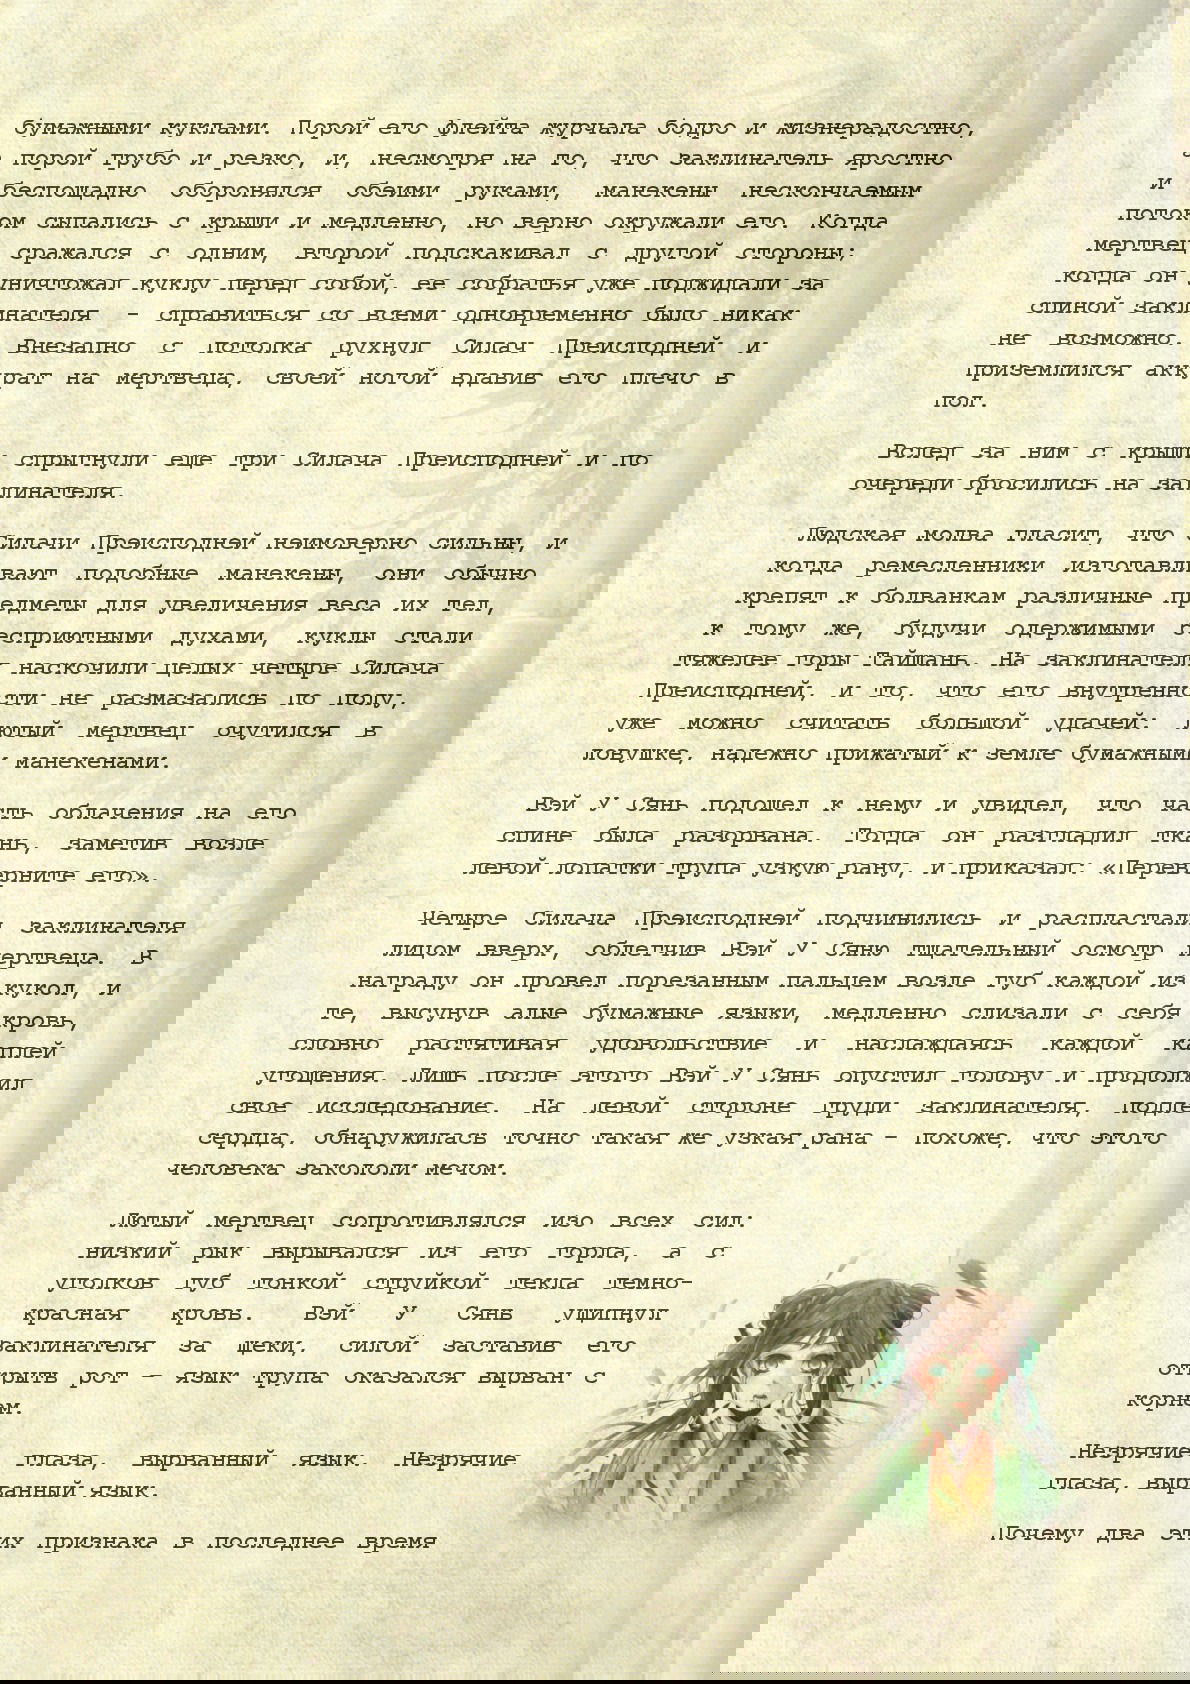 бумажными куклами. Порой его флейта журчала бодро и жизнерадостно,
а порой грубо и резко, и, несмотря на то, что заклинатель яростно
и беспощадно оборонялся обеими руками, манекены нескончаемым
потоком сыпались с крыши и медленно, но верно окружали его. Когда
мертвец сражался с одним, второй подскакивал с другой стороны;
когда он уничтожал куклу перед собой, ее собратья уже поджидали за
спиной заклинателя – справиться со всеми одновременно было никак
не возможно. Внезапно с потолка рухнул Силач Преисподней и
приземлился аккурат на мертвеца, своей ногой вдавив его плечо в
пол.
Вслед за ним с крыши спрыгнули еще три Силача Преисподней и по
очереди бросились на заклинателя.
Людская молва гласит, что Силачи Преисподней неимоверно сильны, и
когда ремесленники изготавливают подобные манекены, они обычно
крепят к болванкам различные предметы для увеличения веса их тел,
к тому же, будучи одержимыми бесприютными духами, куклы стали
тяжелее горы Тайшань. На заклинателя наскочили целых четыре Силача
Преисподней, и то, что его внутренности не размазались по полу,
уже можно считать большой удачей: лютый мертвец очутился в
ловушке, надежно прижатый к земле бумажными манекенами.
Вэй У Сянь подошел к нему и увидел, что часть облачения на его
спине была разорвана. Тогда он разгладил ткань, заметив возле
левой лопатки трупа узкую рану, и приказал: «Переверните его».
Четыре Силача Преисподней подчинились и распластали заклинателя
лицом вверх, облегчив Вэй У Сяню тщательный осмотр мертвеца. В
награду он провел порезанным пальцем возле губ каждой из кукол, и
те, высунув алые бумажные языки, медленно слизали с себя кровь,
словно растягивая удовольствие и наслаждаясь каждой каплей
угощения. Лишь после этого Вэй У Сянь опустил голову и продолжил
свое исследование. На левой стороне груди заклинателя, подле
сердца, обнаружилась точно такая же узкая рана – похоже, что этого
человека закололи мечом.
Лютый мертвец сопротивлялся изо всех сил:
низкий рык вырывался из его горла, а с
уголков губ тонкой струйкой текла темно-
красная кровь. Вэй У Сянь ущипнул
заклинателя за щеки, силой заставив его
открыть рот – язык трупа оказался вырван с
корнем.
Незрячие глаза, вырванный язык. Незрячие
глаза, вырванный язык.
Почему два этих признака в последнее время